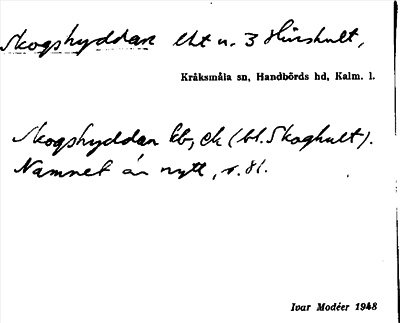 Skogshyddan lht u. 3 Hirshult,
Kråksmåla sn, Handbörds hd, Kalm. l.
Skogshyddan kb, ek (bl. Skoghult).
Namnet är nytt, s. 81.
Ivar Modéer 1948